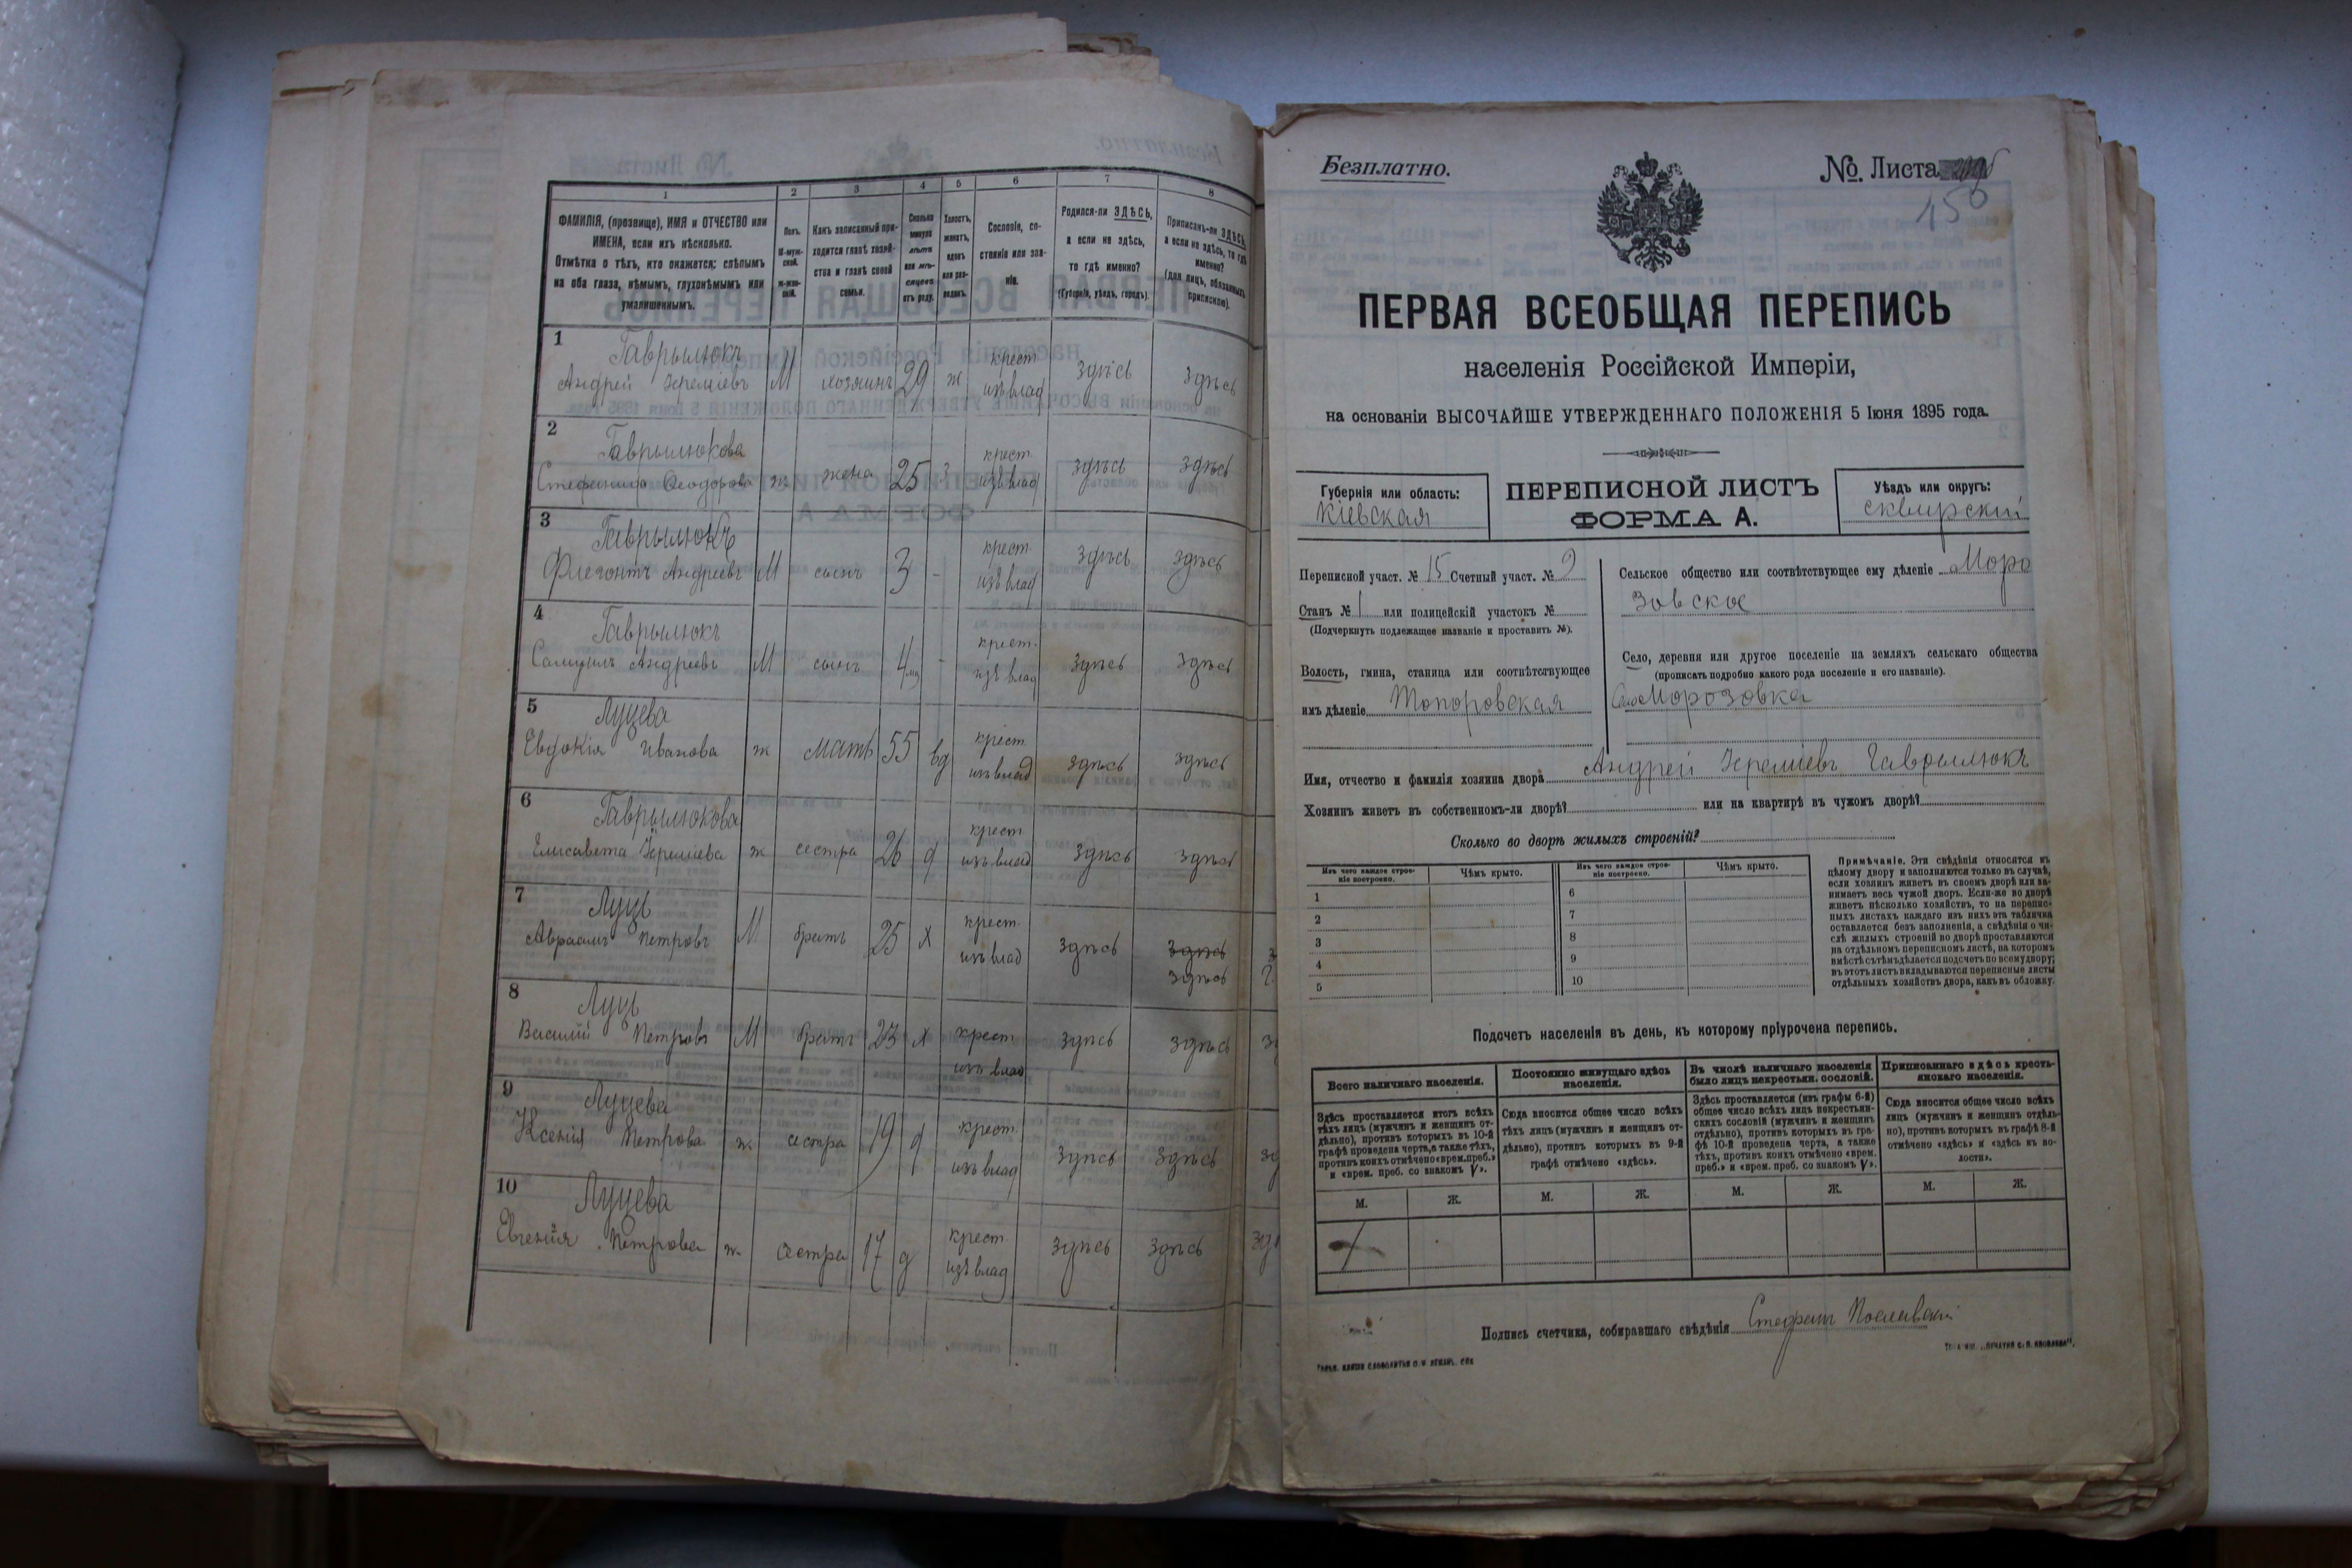 1 2 3 4 5 6 7 8
ФАМИЛІЯ, (прозвище), ИМЯ и ОТЧЕСТВО или
ИМЕНА, если ихъ нѣсколько.
Отмѣтка о тѣхъ, кто окажется: слѣпымъ
на оба глаза, нѣмымъ, глухонѣмымъ или
умалишеннымъ.
Полъ.
М-муж-
ской.
ж-жен-
скій.
Какъ записанный при-
ходится главѣ хозяй-
ства и главѣ своей
семьи.
Сколько
минуло
лѣтъ
или мѣ-
сяцевъ
отъ роду.
Холостъ,
женатъ,
вдовъ
или раз-
веденъ.
Сословіе, со-
стояніе или зва-
ніе.
Родился-ли ЗДѢСЬ,
а если не здѣсь,
то гдѣ именно?
(Губернія, уѣздъ, городъ).
Приписанъ-ли ЗДѢСЬ,
а если не здѣсь, то гдѣ
именно?
(для лицъ, обязанныхъ
припискою).
1 Гаврылюкъ крест
Андрей Іереміевъ М хозяинъ 29 ж изъ влад здѣсь здѣсь
2 Гаврылюкова крест
Стефанида Ѳеодорова ж жена 25 з изъ влад здѣсь здѣсь
3 Гаврылюкъ крест
Флегонтъ Андреевъ М сынъ 3 - изъ влад здѣсь здѣсь
4 Гаврылюкъ крест.
Самуилъ Андреевъ М сынъ 4 мц - изъ влад здѣсь здѣсь
5 Луцева крест
Евдокія Иванова ж мать 55 вд изъ влад здѣсь здѣсь
6 Гаврылюкова крест
Елисавета Іереміева ж сестра 26 д изъ влад здѣсь здѣсь
7 Луць крест
Авраамъ Петровъ М братъ 25 х изъ влад здѣсь здѣсь
здѣсь
8 Луць крест
Василій Петровъ М братъ 23 х изъ влад здѣсь здѣсь
9 Луцева крест.
Ксенія Петрова ж сестра 19 д изъ влад здѣсь здѣсь
10 Луцева крест
Евгенія Петрова ж сестра 17 д изъ влад здѣсь здѣсь
Безплатно.
№ Листа
150
ПЕРВАЯ ВСЕОБЩАЯ ПЕРЕПИСЬ
населенія Россійской Имперіи,
на основаніи ВЫСОЧАЙШЕ УТВЕРЖДЕННАГО ПОЛОЖЕНІЯ 5 Іюня 1895 года.
Губернія или область:
Кіевская
ПЕРЕПИСНОЙ ЛИСТЪ
ФОРМА А.
Уѣздъ или округъ:
сквирскій
Переписной участ. № 15 Счетный участ. № 9
Станъ № 1 или полицейскій участокъ №
(Подчеркнуть подлежащее названіе и проставить №).
Волость, гмина, станица или соотвѣтствующее
имъ дѣленіе Топоровская
Сельское общество или соотвѣтствующее ему дѣленіе Моро
зовское
Село, деревня или другое поселеніе на земляхъ сельскаго общества
(прописать подробно какого рода поселеніе и его названіе).
Село Морозовка
Имя, отчество и фамилія хозяина двора Андрей Іереміевъ Гаврылюкъ
Хозяинъ живетъ въ собственномъ-ли дворѣ? или на квартирѣ въ чужомъ дворѣ?
Сколько во дворѣ жилыхъ строеній?
Изъ чего каждое строе-
ніе построено.
Чѣмъ крыто.
Изъ чего каждое строе-
ніе построено.
Чѣмъ крыто.
1 6
2 7
3 8
4 9
5 10
Примѣчаніе. Эти свѣдѣнія относятся къ
цѣлому двору и заполняются только въ случаѣ,
если хозяинъ живетъ въ своемъ дворѣ или за-
нимаетъ весь чужой дворъ. Если-же во дворѣ
живетъ нѣсколько хозяйствъ, то на перепис-
ныхъ листахъ каждаго изъ нихъ эта табличка
оставляется безъ заполненія, а свѣдѣнія о чи-
слѣ жилыхъ строеній во дворѣ проставляются
на отдѣльномъ переписномъ листѣ, на которомъ
вмѣстѣ съ тѣмъ дѣлается подсчетъ по всему двору;
въ этотъ листъ вкладываются переписные листы
отдѣльныхъ хозяйствъ двора, какъ въ обложку.
Подсчетъ населенія въ день, къ которому пріурочена перепись.
Всего наличнаго населенія.
Здѣсь проставляется итогъ всѣхъ
тѣхъ лицъ (мужчинъ и женщинъ от-
дѣльно), противъ которыхъ въ 10-й
графѣ проведена черта, а также тѣхъ,
противъ коихъ отмѣчено «врем. преб.»
и «врем. преб. со знакомъ V».
Постоянно живущаго здѣсь
населенія.
Сюда вносится общее число всѣхъ
тѣхъ лицъ (мужчинъ и женщинъ от-
дѣльно), противъ которыхъ въ 9-й
графѣ отмѣчено «здѣсь».
Въ числѣ наличнаго населенія
было лицъ некрестьян. сословій.
Здѣсь проставляется (изъ графы 6-й)
общее число всѣхъ лицъ некрестьян-
скихъ сословій (мужчинъ и женщинъ
отдѣльно), противъ которыхъ въ гра-
фѣ 10-й проведена черта, а также
тѣхъ, противъ коихъ отмѣчено «врем.
преб.» и «врем. преб. со знакомъ V».
Приписаннаго здѣсь кресть-
янскаго населенія.
Сюда вносится общее число всѣхъ
лицъ (мужчинъ и женщинъ отдѣль-
но), противъ которыхъ въ графѣ 8-й
отмѣчено «здѣсь» и «здѣсь въ во-
лости».
М. Ж. М. Ж. М. Ж. М. Ж.
Подпись счетчика, собиравшаго свѣдѣнія Стефанъ